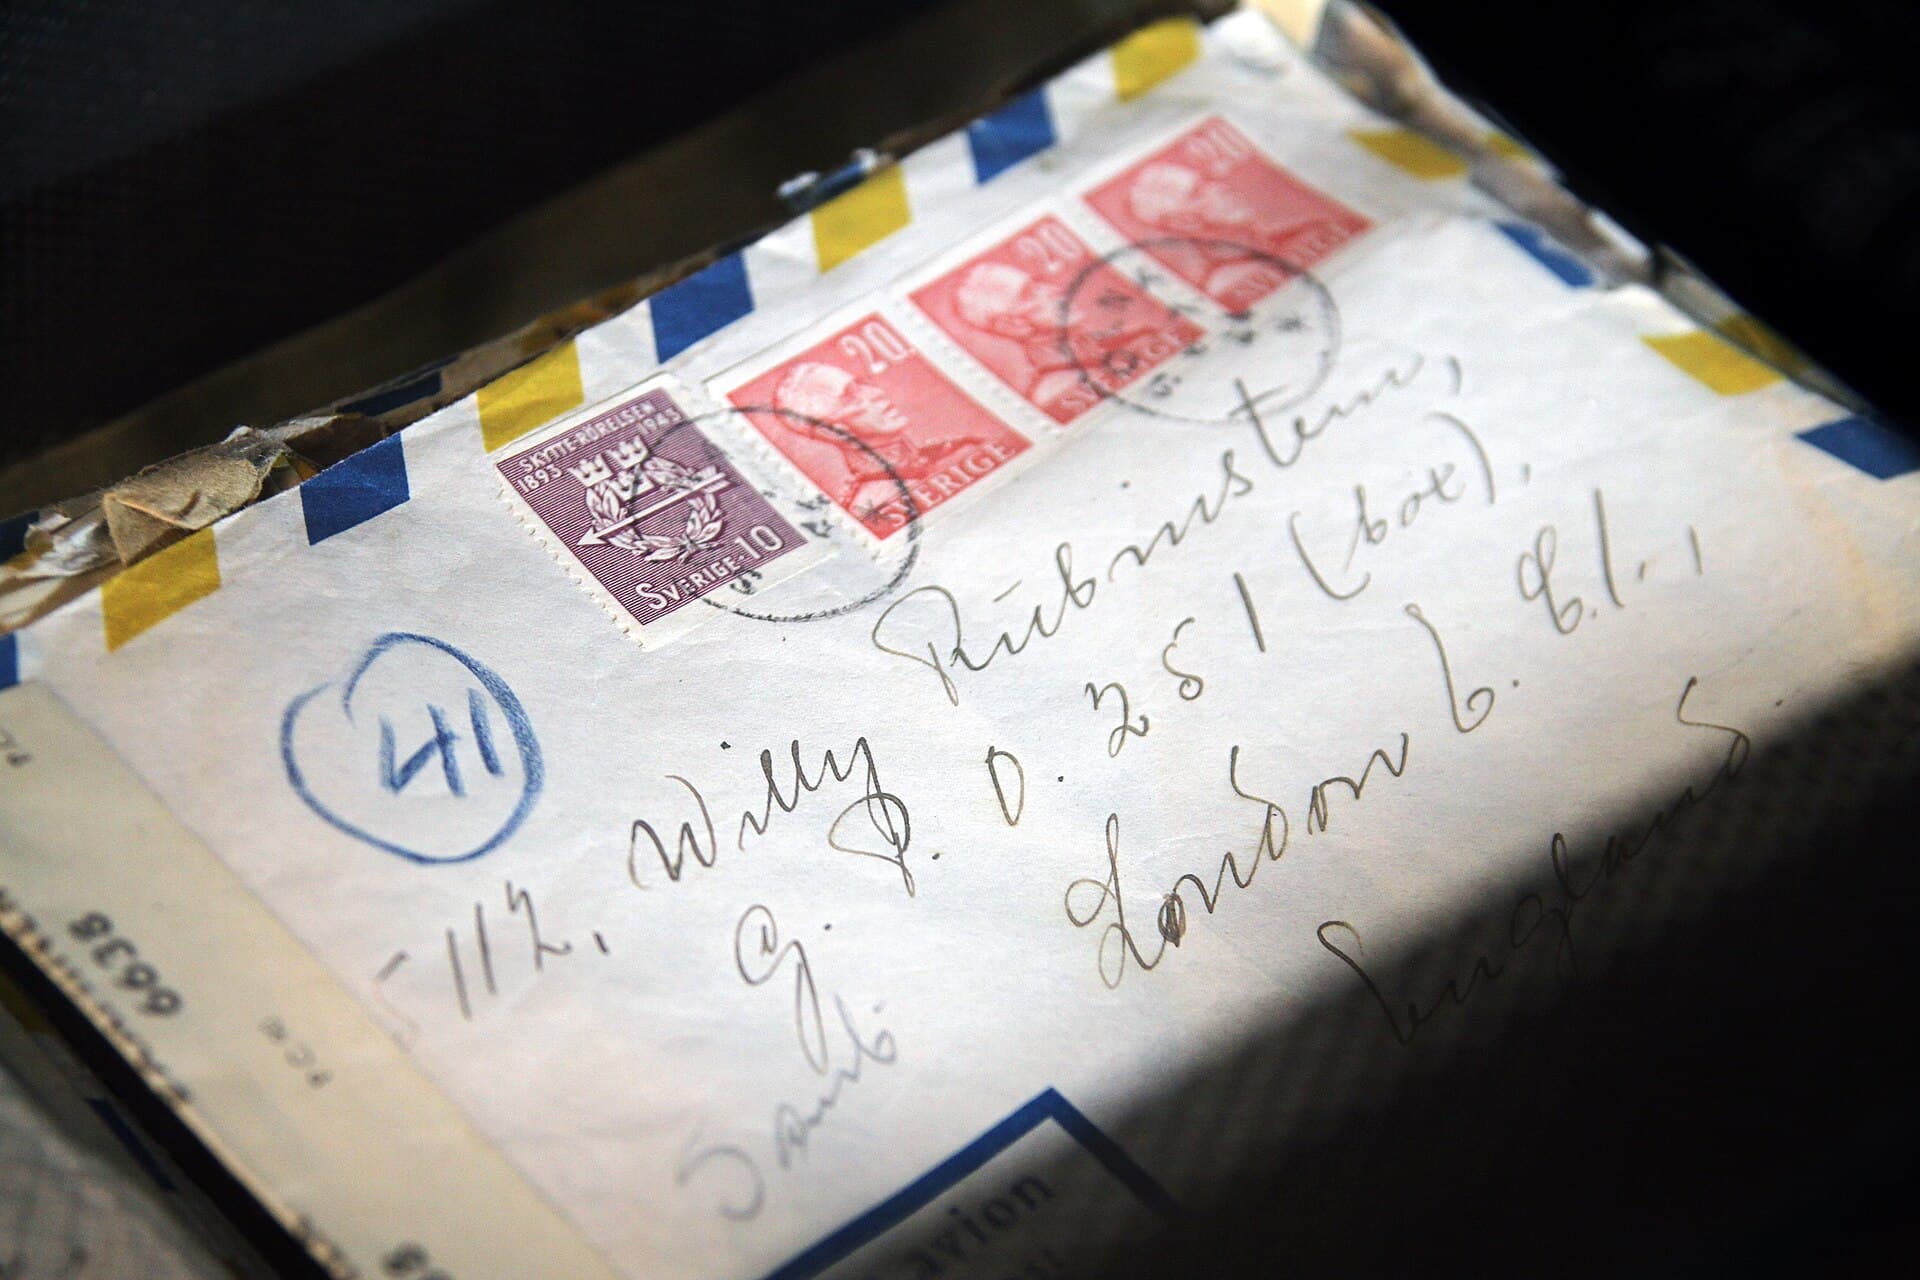 SKYTTE-RÖRELSEN
1893 1943
SVERIGE 10
20
SVERIGE
20
SVERIGE
20
SVERIGE
41
-112, Willy Rubinstein,
G. P. O. 251 (box),
London E. C. 1.,
England.
6638
avion